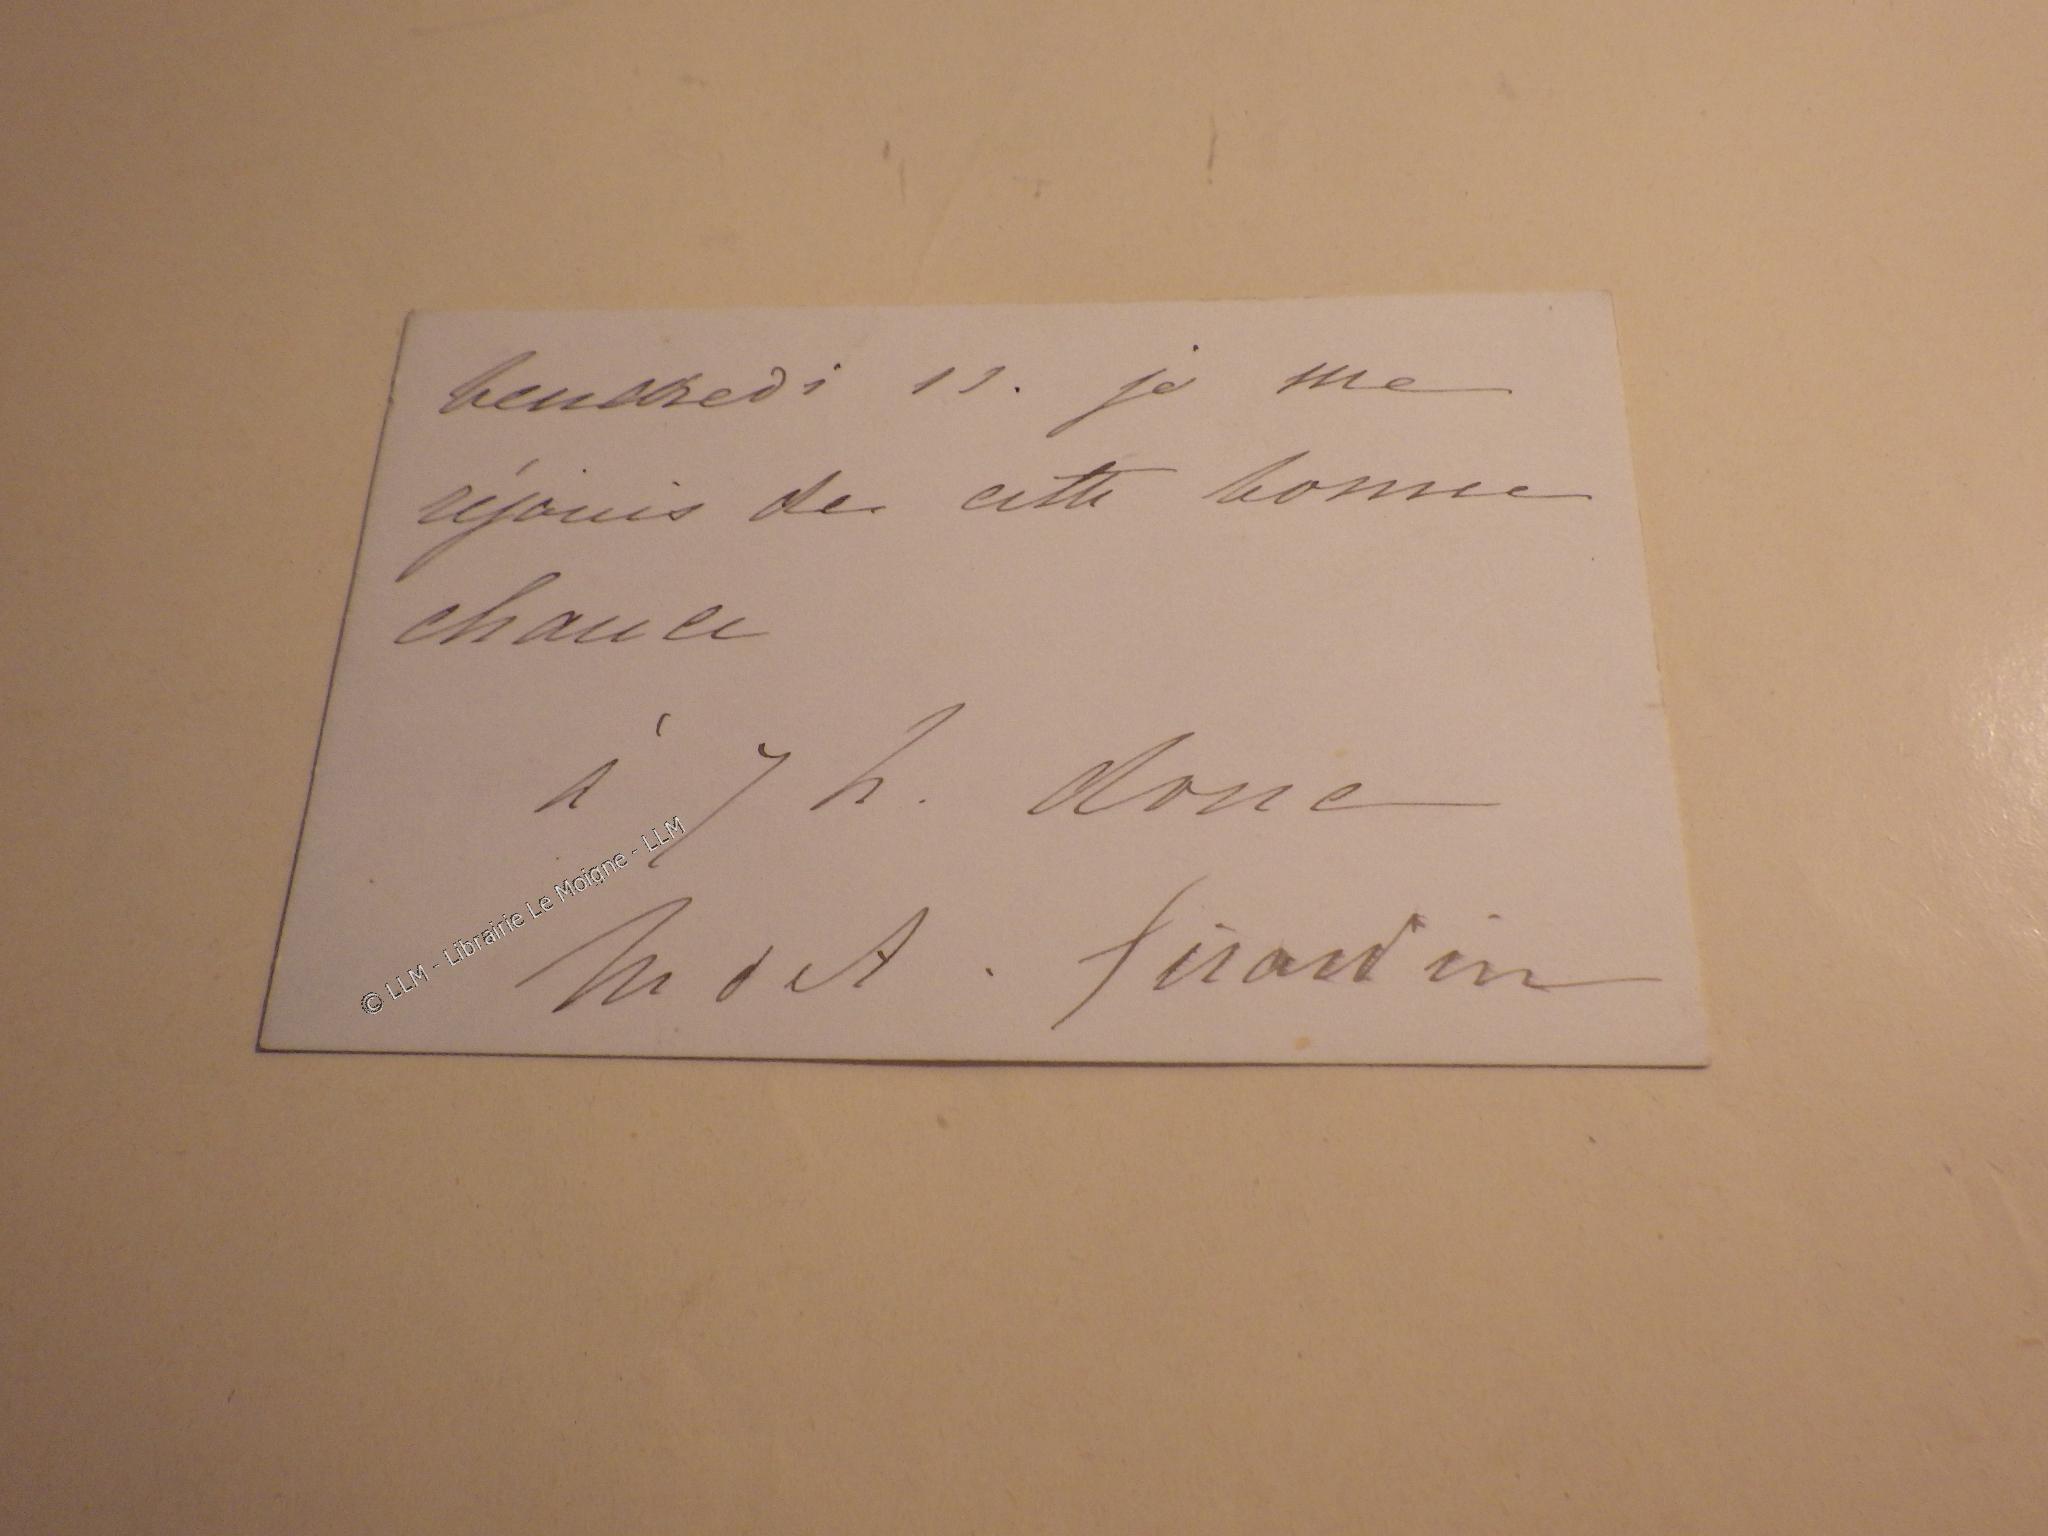 vendredi 11. je me
réjouis de cette bonne
chance
à 7 h. donc
M de A. Girardin
© LLM - Librairie Le Moigne - LLM